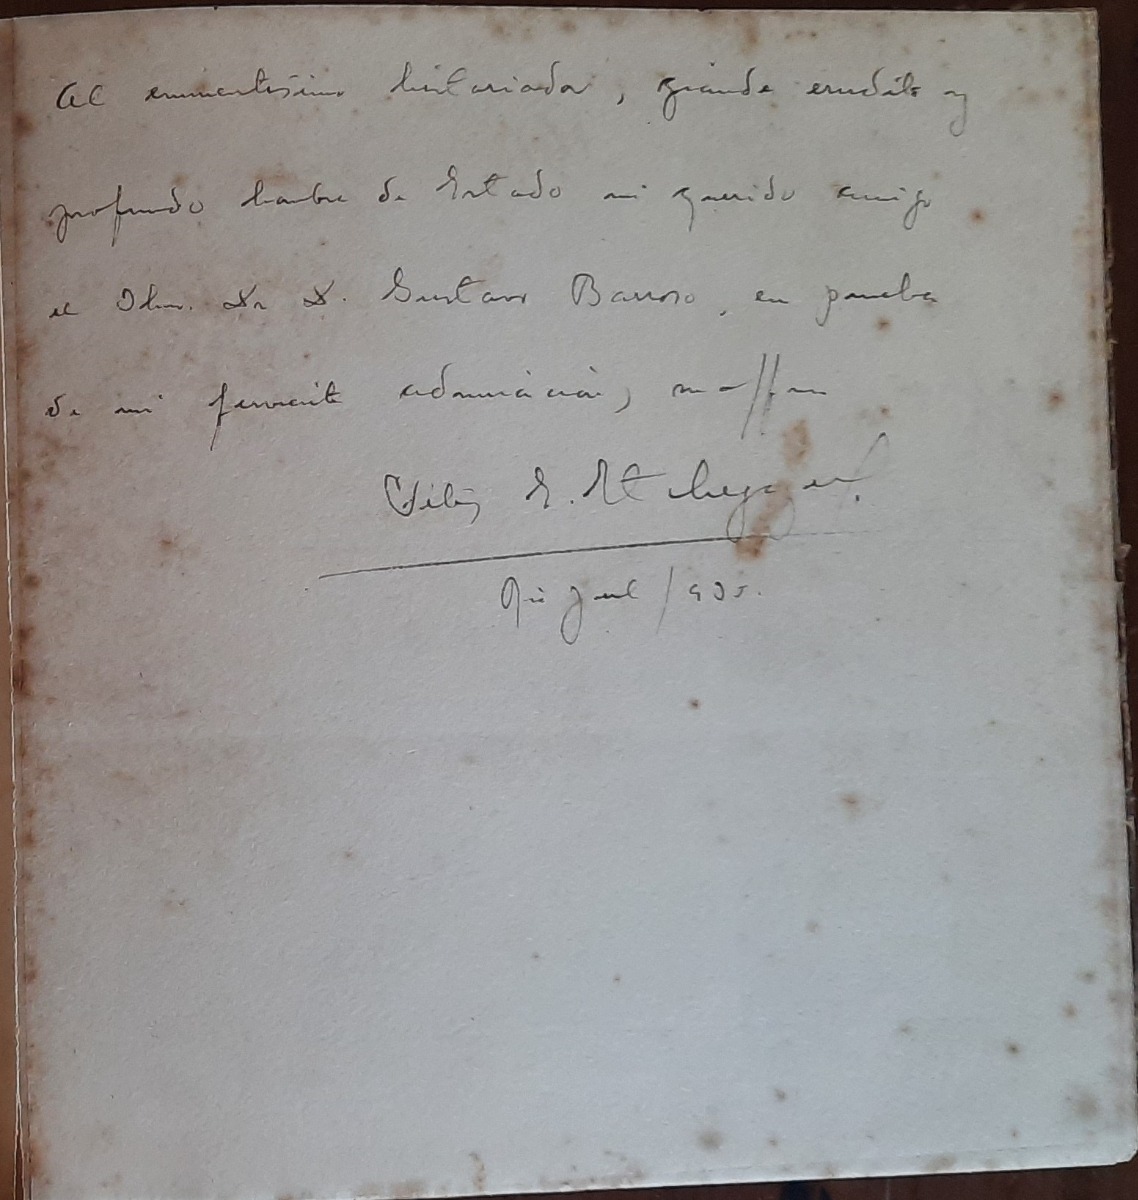 Al eminentisimo historiador, grande erudito y
profundo hombre de Estado mi querido amigo
el Ilmo. Dr D. Gustavo Barroso, en prueba
de mi ferviente admiración,
Félix E. Etchegoyen.
Rio Jul/935.